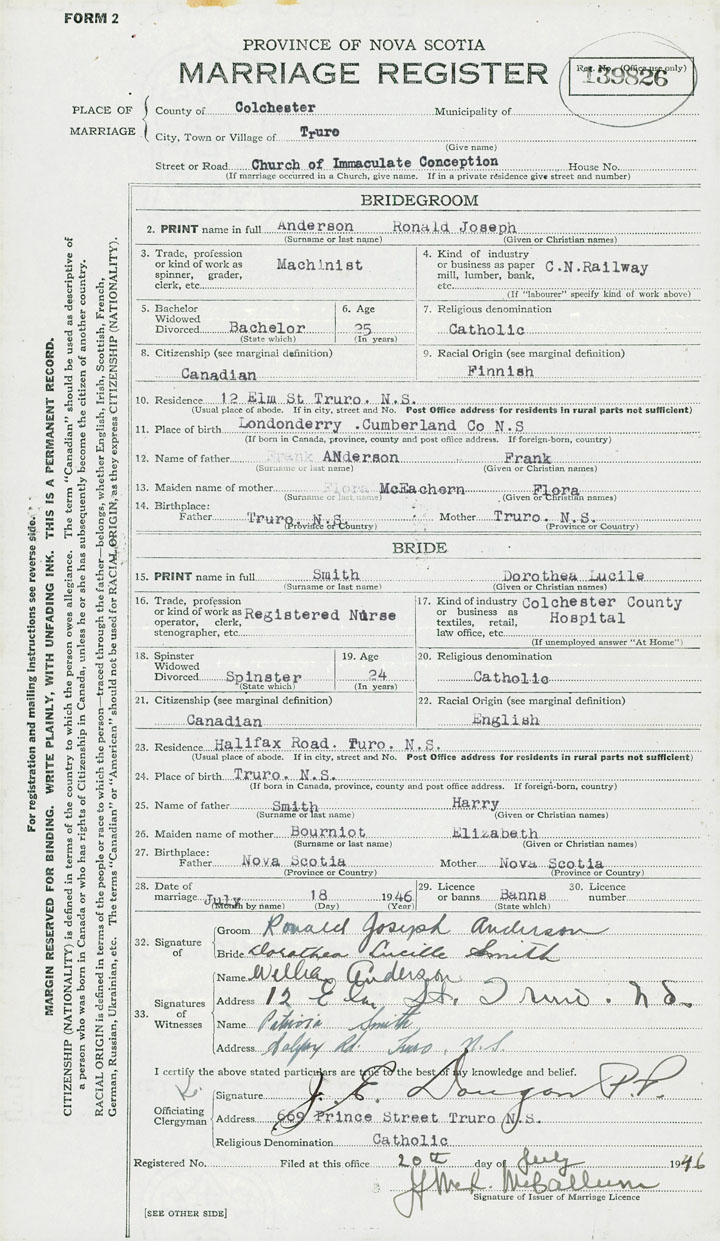 FORM 2
PROVINCE OF NOVA SCOTIA
MARRIAGE REGISTER
Reg. No. (Office use only)
139826
PLACE OF MARRIAGE
County of Colchester Municipality of
City, Town or Village of Truro
(Give name)
Street or Road Church of Immaculate Conception House No.
(If marriage occurred in a Church, give name. If in a private residence give street and number)
BRIDEGROOM
2. PRINT name in full Anderson Ronald Joseph
(Surname or last name) (Given or Christian names)
3. Trade, profession or kind of work as spinner, grader, clerk, etc. Machinist
4. Kind of industry or business as paper mill, lumber, bank, etc. C.N.Railway
(If "labourer" specify kind of work above)
5. Bachelor Widowed Divorced Bachelor
(State which)
6. Age 25
(In years)
7. Religious denomination
Catholic
8. Citizenship (see marginal definition)
Canadian
9. Racial Origin (see marginal definition)
Finnish
10. Residence 12 Elm St Truro. N.S.
(Usual place of abode. If in city, street and No. Post Office address for residents in rural parts not sufficient)
11. Place of birth Londonderry .Cumberland Co N.S
(If born in Canada, province, county and post office address. If foreign-born, country)
12. Name of father Frank ANderson Frank
(Surname or last name) (Given or Christian names)
13. Maiden name of mother Flora McEachern Flora
(Surname or last name) (Given or Christian names)
14. Birthplace:
Father Truro. N.S. Mother Truro. N.S.
(Province or Country) (Province or Country)
BRIDE
15. PRINT name in full Smith Dorothea Lucile
(Surname or last name) (Given or Christian names)
16. Trade, profession or kind of work as operator, clerk, stenographer, etc. Registered Nurse
17. Kind of industry or business as textiles, retail, law office, etc. Colchester County Hospital
(If unemployed answer "At Home")
18. Spinster Widowed Divorced Spinster
(State which)
19. Age 24
(In years)
20. Religious denomination
Catholic
21. Citizenship (see marginal definition)
Canadian
22. Racial Origin (see marginal definition)
English
23. Residence Halifax Road. Turo. N.S.
(Usual place of abode. If in city, street and No. Post Office address for residents in rural parts not sufficient)
24. Place of birth Truro. N.S.
(If born in Canada, province, county and post office address. If foreign-born, country)
25. Name of father Smith Harry
(Surname or last name) (Given or Christian names)
26. Maiden name of mother Bourniot Elizabeth
(Surname or last name) (Given or Christian names)
27. Birthplace:
Father Nova Scotia Mother Nova Scotia
(Province or Country) (Province or Country)
28. Date of marriage July 18 1946
(Month by name) (Day) (Year)
29. Licence or banns Banns
(State which)
30. Licence number
32. Signature of
Groom Ronald Joseph Anderson
Bride Dorothea Lucille Smith
33. Signatures of Witnesses
Name William Anderson
Address 12 Elm St. Truro. N.S.
Name Patricia Smith
Address Rd. Truro, N.S.
I certify the above stated particulars are true to the best of my knowledge and belief.
Officiating Clergyman
Signature J. E. P.P.
Address 669 Prince Street Truro N.S.
Religious Denomination Catholic
Registered No. Filed at this office 20th day of July 1946
McCallum
Signature of Issuer of Marriage Licence
[SEE OTHER SIDE]
For registration and mailing instructions see reverse side.
MARGIN RESERVED FOR BINDING. WRITE PLAINLY, WITH UNFADING INK. THIS IS A PERMANENT RECORD.
CITIZENSHIP (NATIONALITY) is defined in terms of the country to which the person owes allegiance. The term "Canadian" should be used as descriptive of
a person who was born in Canada or who has rights of Citizenship in Canada, unless he or she has subsequently become the citizen of another country.
RACIAL ORIGIN is defined in terms of the people or race to which the person—traced through the father—belongs, whether English, Irish, Scottish, French,
German, Russian, Ukrainian, etc. The terms "Canadian" or "American" should not be used for RACIAL ORIGIN, as they express CITIZENSHIP (NATIONALITY).